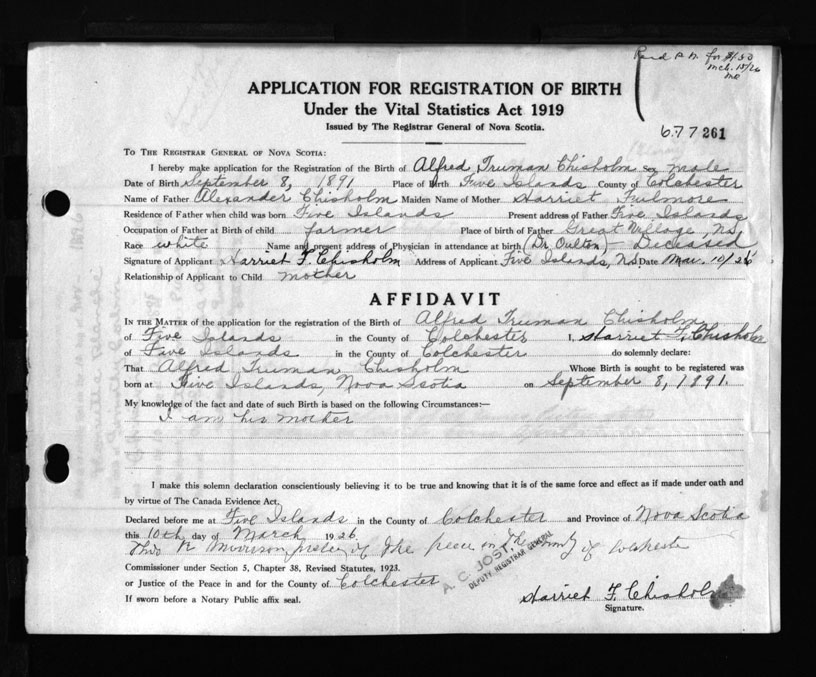 Paid P.M. for $1/50
Mch. 15/26
APPLICATION FOR REGISTRATION OF BIRTH
Under the Vital Statistics Act 1919
Issued by The Registrar General of Nova Scotia.
677261
To The Registrar General of Nova Scotia:
I hereby make application for the Registration of the Birth of Alfred Truman Chisholm Sex male
Date of Birth September 8, 1891 Place of Birth Five Islands County of Colchester
Name of Father Alexander Chisholm Maiden Name of Mother Harriet Fulmore
Residence of Father when child was born Five Islands Present address of Father Five Islands
Occupation of Father at Birth of child farmer Place of birth of Father Great Village, N.S.
Race white Name and present address of Physician in attendance at birth (Dr. Oulton) - Deceased
Signature of Applicant Harriet F. Chisholm Address of Applicant Five Islands, N.S. Date Mar. 10/26
Relationship of Applicant to Child mother
AFFIDAVIT
In the Matter of the application for the registration of the Birth of Alfred Truman Chisholm
of Five Islands in the County of Colchester I, Harriet F. Chisholm
of Five Islands in the County of Colchester do solemnly declare:
That Alfred Truman Chisholm Whose Birth is sought to be registered was
born at Five Islands, Nova Scotia on September 8, 1891.
My knowledge of the fact and date of such Birth is based on the following Circumstances:—
I am his mother
I make this solemn declaration conscientiously believing it to be true and knowing that it is of the same force and effect as if made under oath and
by virtue of The Canada Evidence Act.
Declared before me at Five Islands in the County of Colchester and Province of Nova Scotia
this 10th day of March 1926
Thos R Morrison of the peace in the County of Colchester
Commissioner under Section 5, Chapter 38, Revised Statutes, 1923.
or Justice of the Peace in and for the County of Colchester
A. C. JOST,
DEPUTY REGISTRAR GENERAL
If sworn before a Notary Public affix seal.
Harriet F. Chisholm
Signature.